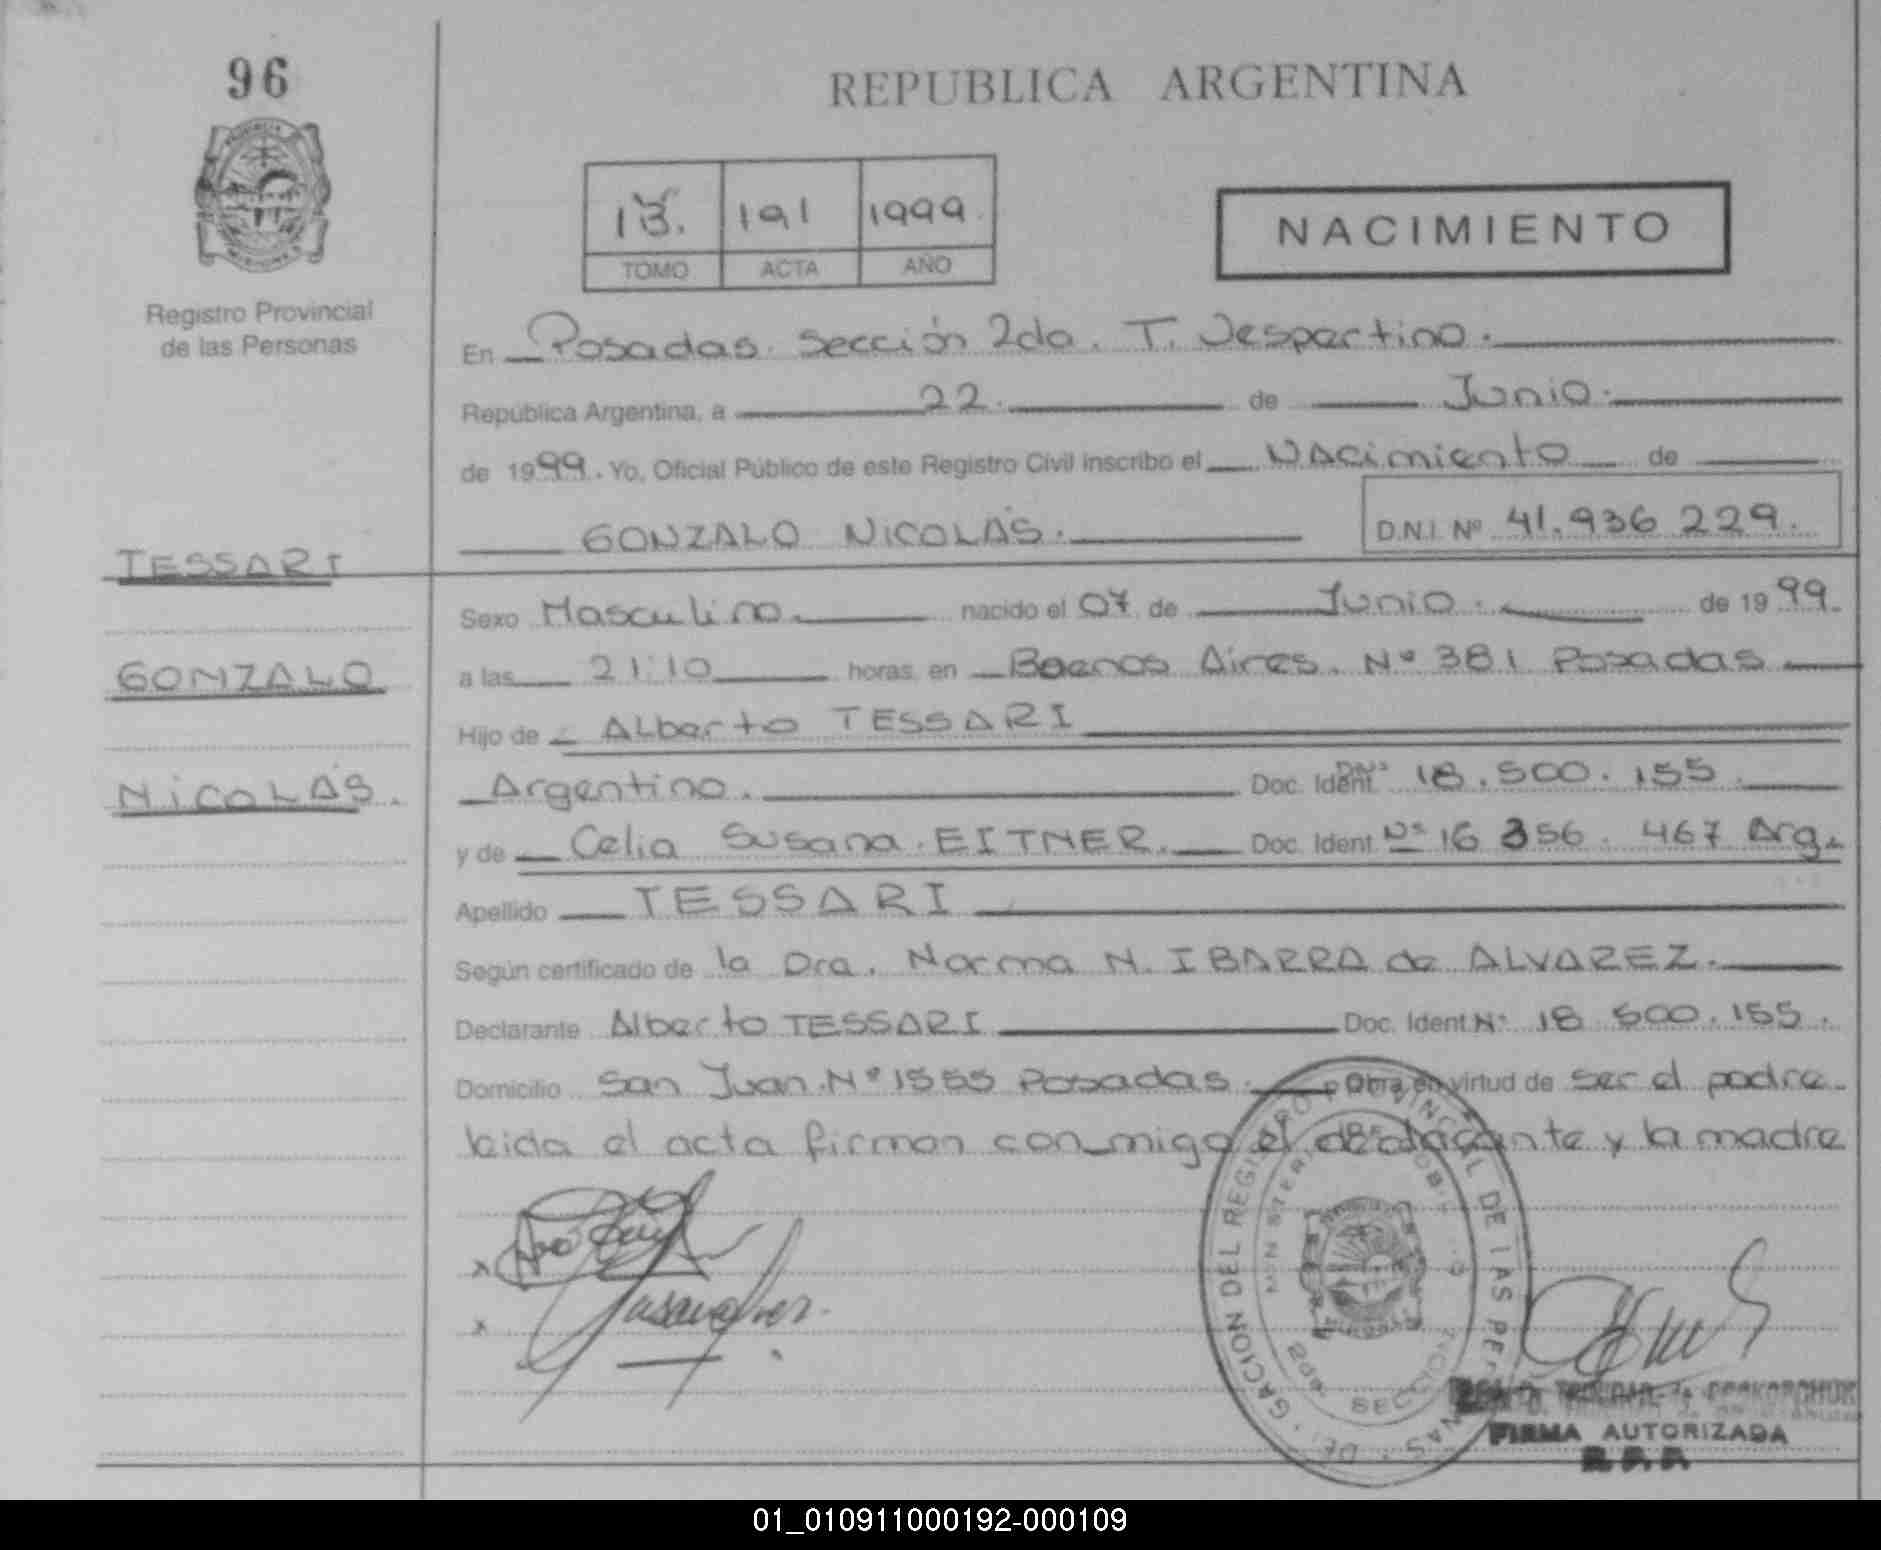 96
REPUBLICA ARGENTINA
13. 191 1999.
TOMO ACTA AÑO
NACIMIENTO
Registro Provincial
de las Personas
En Posadas. Sección 2da. T. Vespertino.
República Argentina, a 22. de Junio.
de 1999. Yo, Oficial Público de este Registro Civil inscribo el Nacimiento de
GONZALO NICOLÁS. D.N.I. Nº 41.936 229.
TESSARI
GONZALO
NICOLÁS.
Sexo Masculino. nacido el 07 de Junio. de 1999.
a las 21:10 horas, en Buenos Aires. Nº 381 Posadas
Hijo de Alberto TESSARI
Argentino. Doc. Ident. DNº 18.500.155.
y de Celia Susana. EITNER. Doc. Ident Nº 16 356. 467 Arg.
Apellido TESSARI
Según certificado de la Dra. Norma N. IBARRA de ALVAREZ.
Declarante Alberto TESSARI Doc. Ident Nº 18 500.155.
Domicilio San Juan. Nº 1555 Posadas. Obra en virtud de ser el padre.
leida el acta firman conmigo el declarante y la madre
x
x
DELEGACION DEL REGISTRO PROVINCIAL DE LAS PERSONAS
FIRMA AUTORIZADA
R.P.P.
01_010911000192-000109